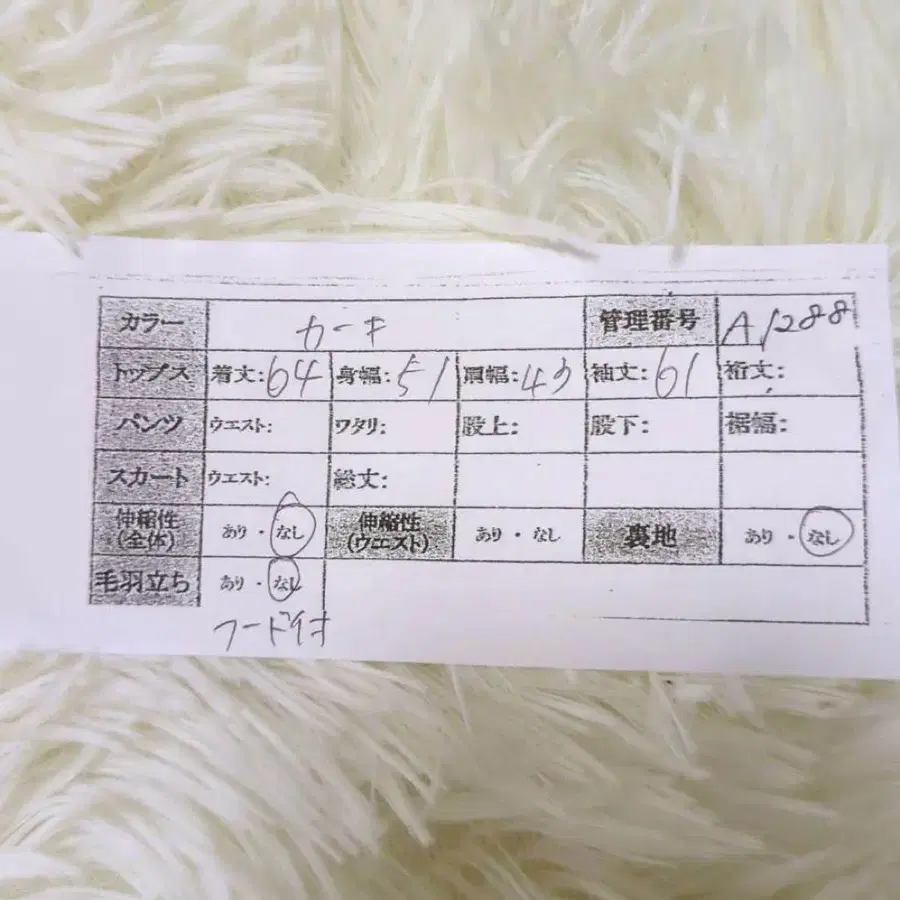 カラー カーキ 管理番号 A1288
トップス 着丈:64 身幅:51 肩幅:43 袖丈:61 裄丈:
パンツ ウエスト: ワタリ: 股上: 股下: 裾幅:
スカート ウエスト: 総丈:
伸縮性(全体) あり・なし 伸縮性(ウエスト) あり・なし 裏地 あり・なし
毛羽立ち あり・なし
フード付